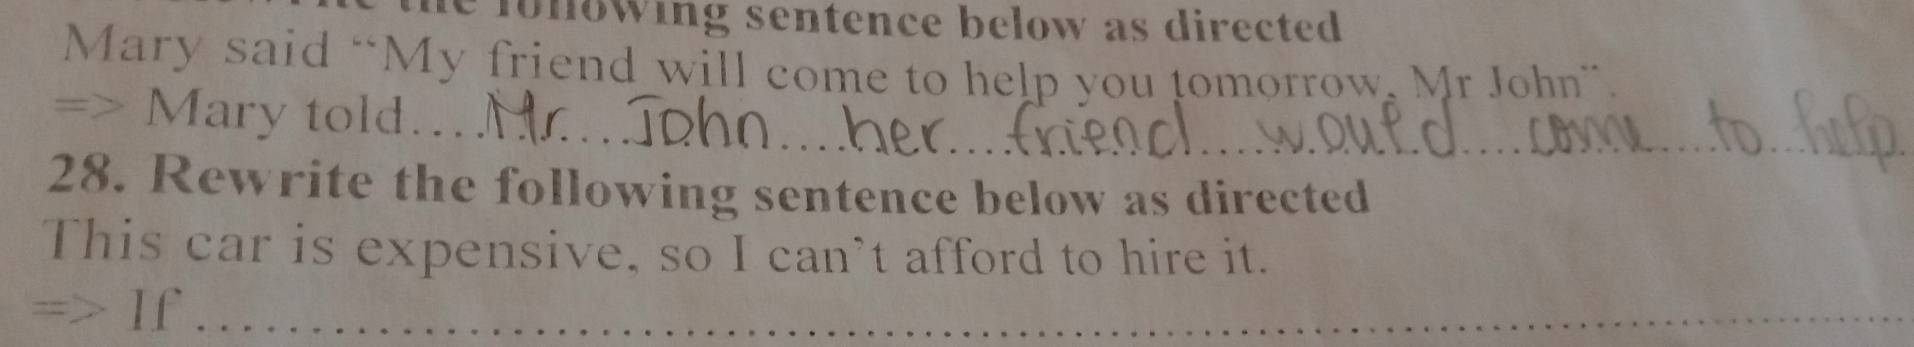 following sentence below as directed
Mary said “My friend will come to help you tomorrow, Mr John”.
=> Mary told....Mr....John....her....friend....would....come....to...help.
28. Rewrite the following sentence below as directed
This car is expensive, so I can’t afford to hire it.
=> If ..........................................................